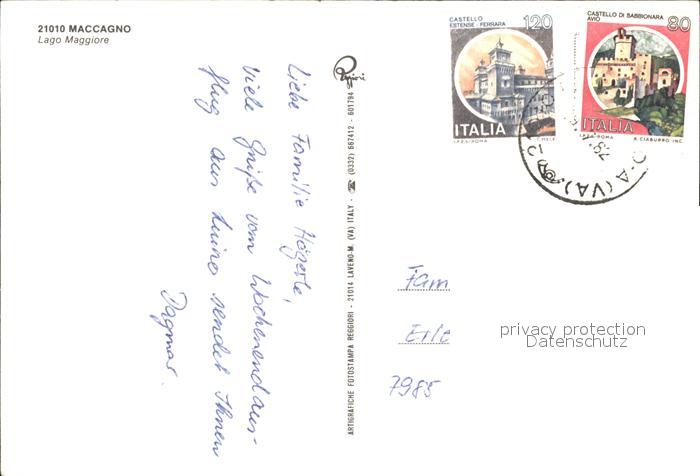 21010 MACCAGNO
Lago Maggiore
Liebe Familie Högerle,
Viele Grüße vom Wochenendaus-
flug aus Luino sendet Ihnen
Dagmar.
ARTIGRAFICHE FOTOSTAMPA REGGIORI - 21014 LAVENO-M. (VA) ITALY - ☎ (0332) 667412 - 601794
CASTELLO
ESTENSE - FERRARA
120
ITALIA
I.P.Z.S. - ROMA
CASTELLO DI SABBIONARA
AVIO
80
ITALIA
I.P.Z.S. - ROMA
A. CIABURRO INC.
(VA)
Fam
Erle
7985
privacy protection
Datenschutz